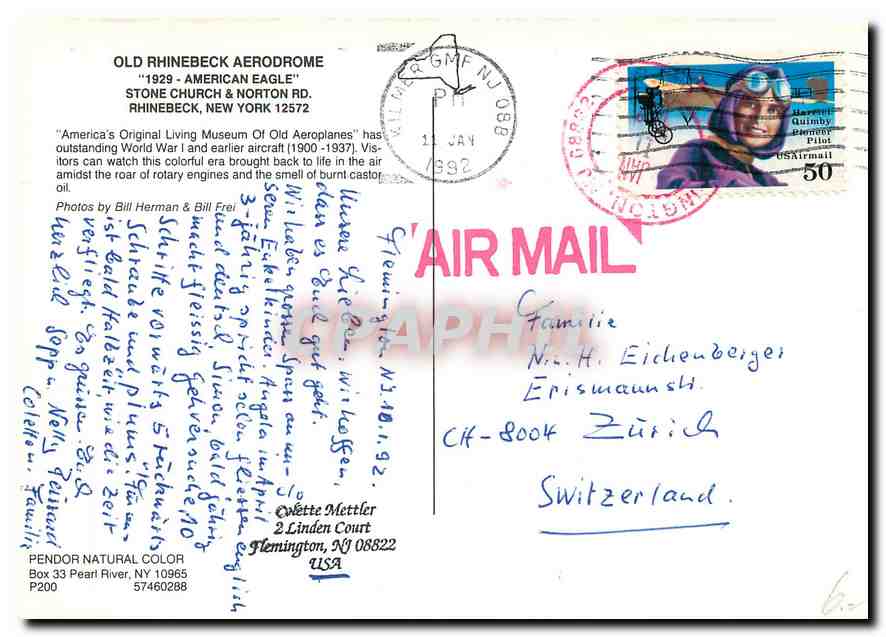 OLD RHINEBECK AERODROME
"1929 - AMERICAN EAGLE"
STONE CHURCH & NORTON RD.
RHINEBECK, NEW YORK 12572
"America's Original Living Museum Of Old Aeroplanes" has
outstanding World War I and earlier aircraft (1900 -1937). Vis-
itors can watch this colorful era brought back to life in the air
amidst the roar of rotary engines and the smell of burnt castor
oil.
Photos by Bill Herman & Bill Frei
Flemington NJ. 10.1.92.
Unsere Lieben, Wir hoffen,
dass es Euch gut geht.
Wir haben grosse Spass an un-
seren Enkelkinder. Angela im April
3-jährig spricht schon fliessen englisch
und deutsch. Simon, bald jährig
macht fleissig Gehversuche, 10
Schritte vorwärts 5 rückwärts
Schraube und plums! Für uns
ist bald Halbzeit, wie die Zeit
verfliegt. Es grüssen Euch
herzlich Seppu Nelly
Colette u. Familie
Colette Mettler
2 Linden Court
Flemington, NJ 08822
USA
PENDOR NATURAL COLOR
Box 33 Pearl River, NY 10965
P200 57460288
KILMER GMF NJ 088
PM
11 JAN
1992
Harriet
Quimby
Pioneer
Pilot
USAirmail
50
AIR MAIL
Familie
N. u. H. Eichenberger
Erismannstr.
CH-8004 Zürich
Switzerland.
CPAPHIL
6.-